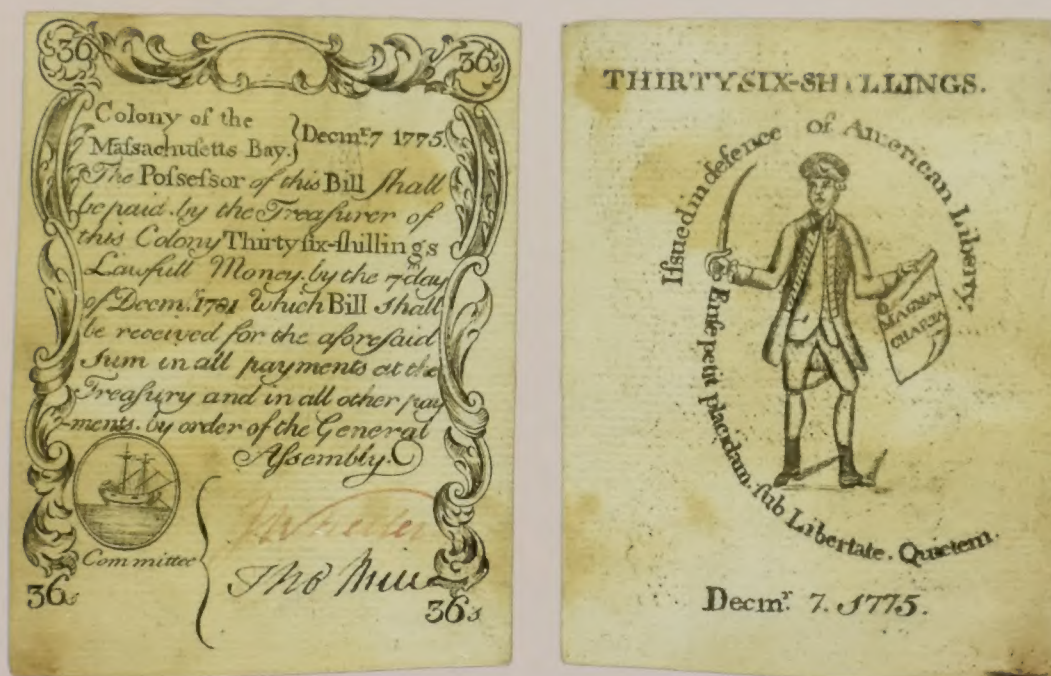 36 36
Colony of the
Maſsachuſetts Bay. } Decmr. 7 1775.
The Poſseſsor of this Bill ſhall
be paid by the Treaſurer of
this Colony Thirty ſix-ſhillings
Lawfull Money. by the 7 day
of Decmr. 1781 Which Bill ſhall
be received for the aforeſaid
ſum in all payments at the
Treaſury and in all other pay
-ments. by order of the General
Aſsembly.
Committee
Tho
36s 36s
THIRTY SIX-SHILLINGS.
Iſsued in defence of American Liberty
Enſe petit placidam. ſub Libertate. Quietem.
MAGNA
CHARTA
Decmr. 7. 1775.